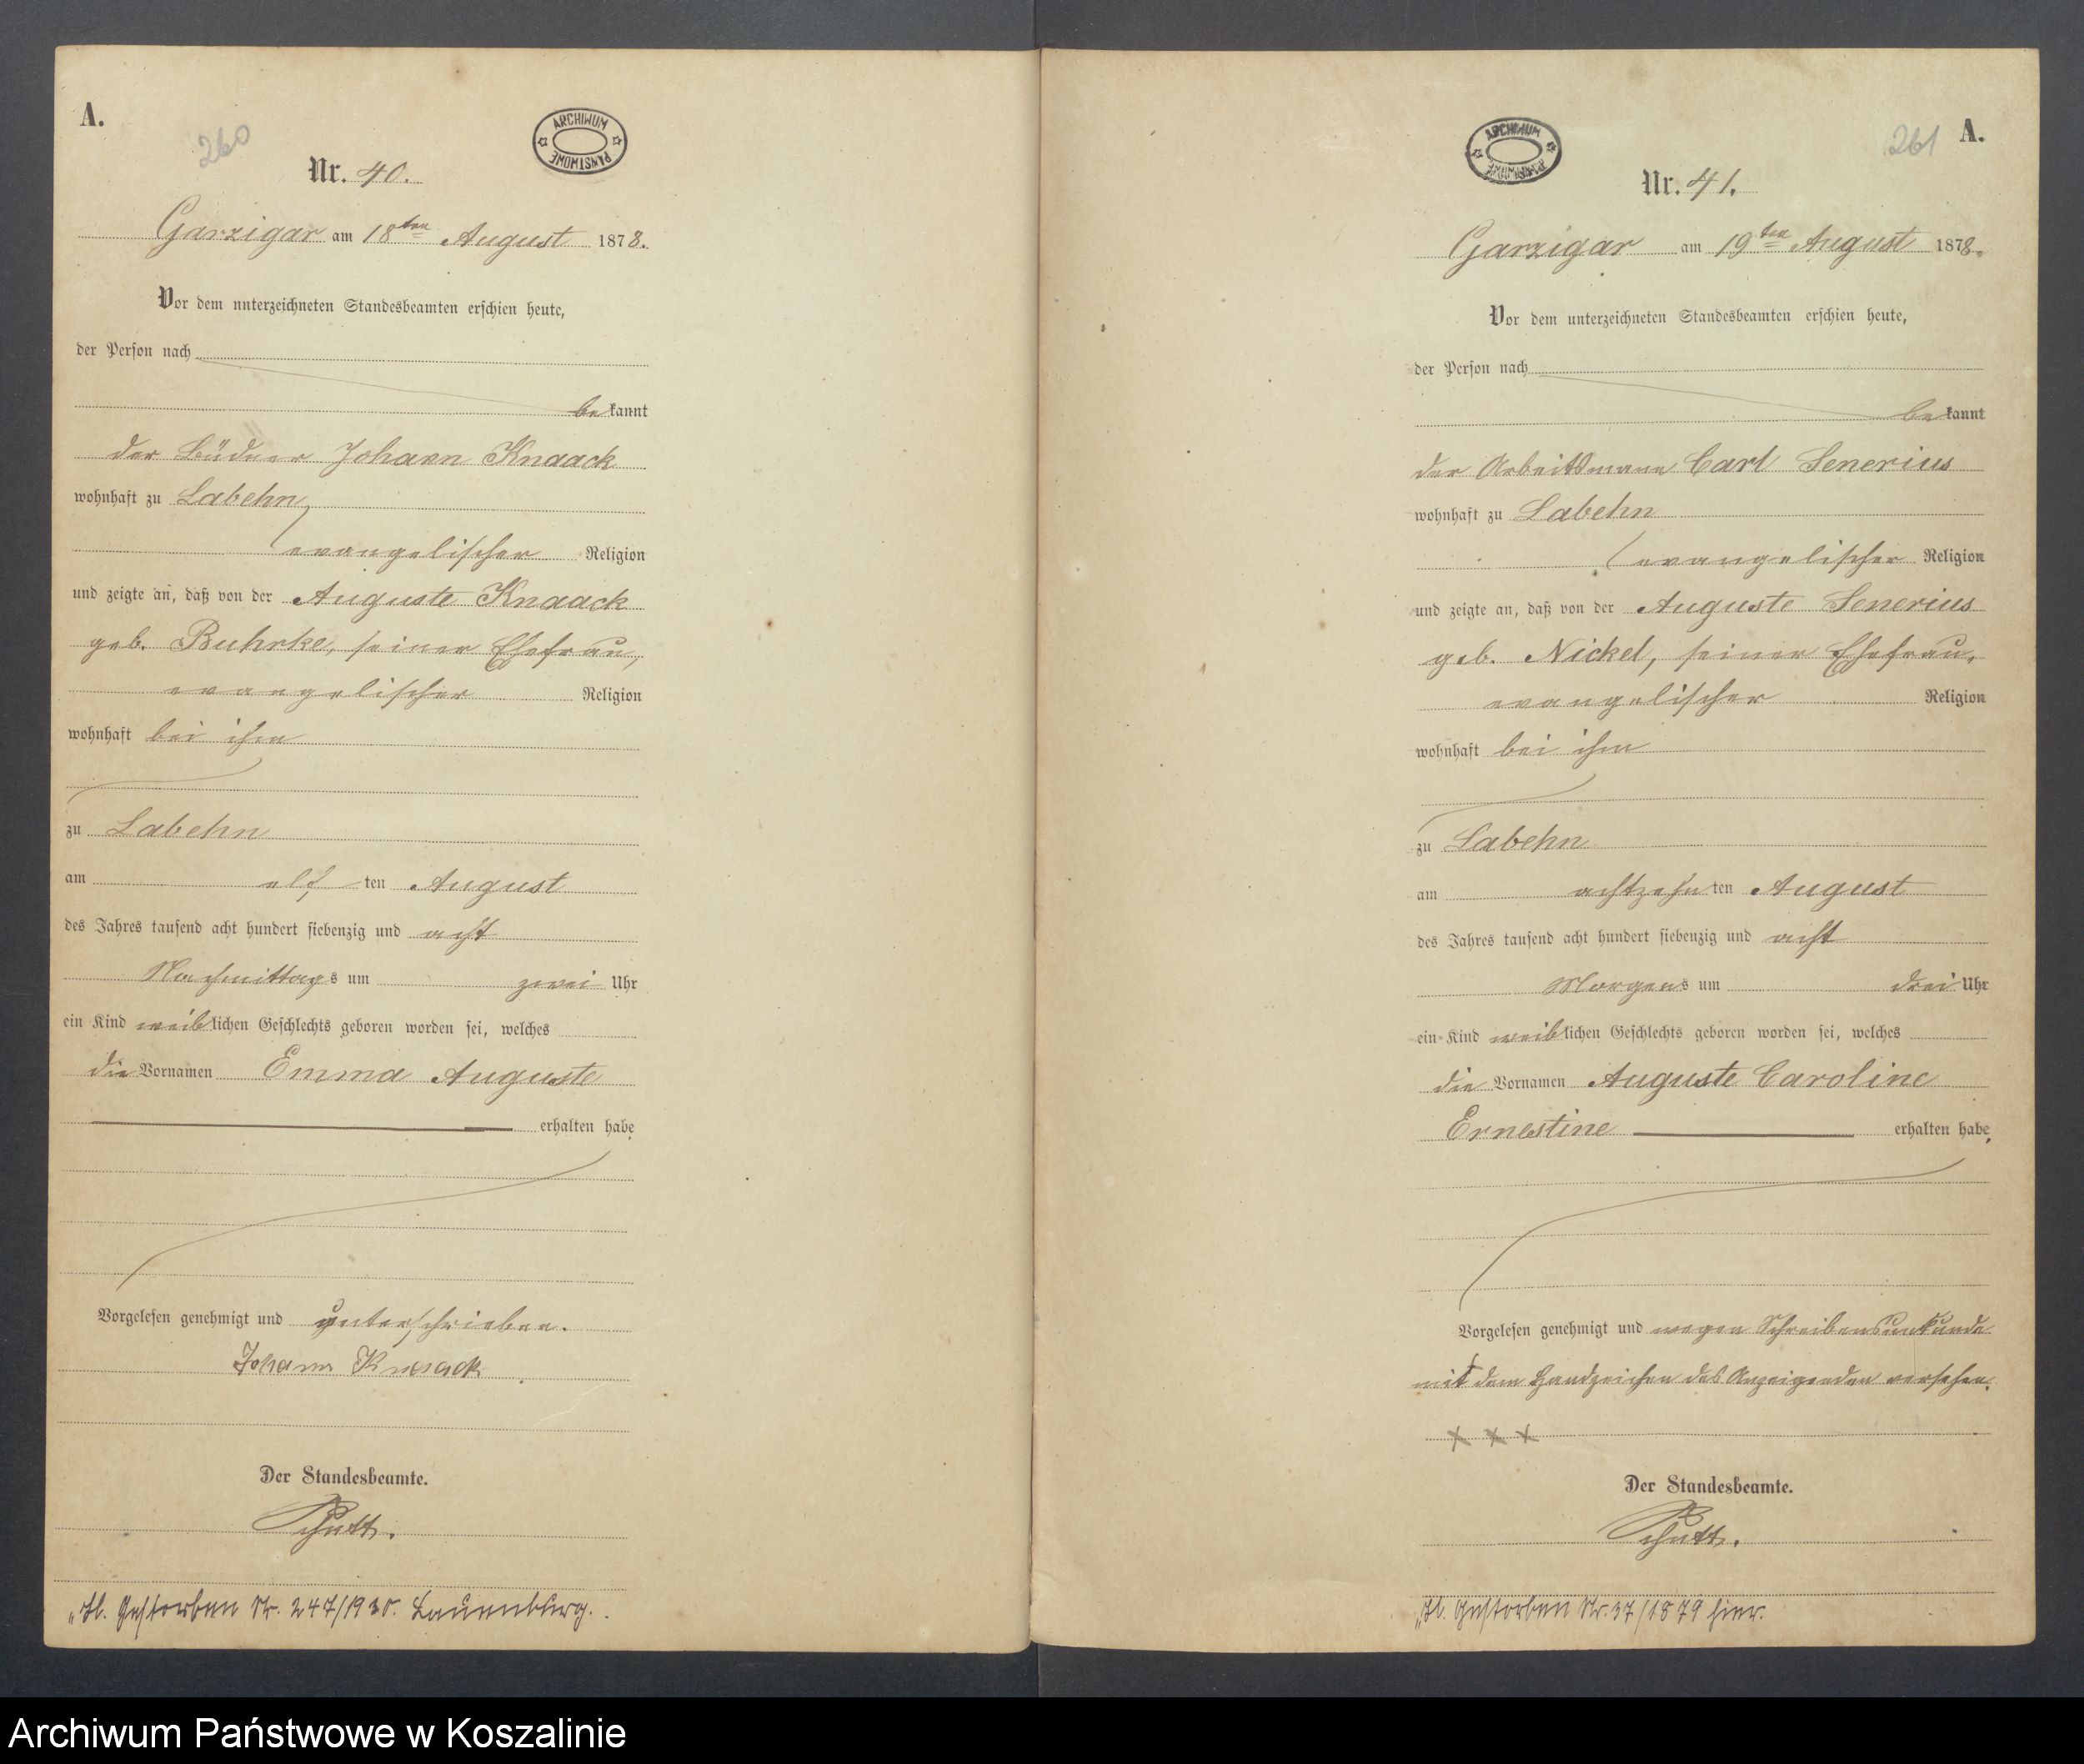 A.
260
ARCHIWUM PAŃSTWOWE
Nr. 40.
Garzigar am 18ten August 1878.
Vor dem unterzeichneten Standesbeamten erschien heute,
der Person nach
bekannt
der Büdner Johann Knaack
wohnhaft zu Labehn,
evangelischer Religion
und zeigte an, daß von der Auguste Knaack
geb. Buhrke, seiner Ehefrau,
evangelischer Religion
wohnhaft bei ihm
zu Labehn
am elf ten August
des Jahres tausend acht hundert siebenzig und acht
Nachmittags um zwei Uhr
ein Kind weiblichen Geschlechts geboren worden sei, welches
die Vornamen Emma Auguste
erhalten habe
Vorgelesen genehmigt und unterschrieben.
Johann Knaack
Der Standesbeamte.
Schutt.
Gestorben Nr. 247/1930. Lauenburg.
261
A.
ARCHIWUM PAŃSTWOWE
Nr. 41.
Garzigar am 19ten August 1878.
Vor dem unterzeichneten Standesbeamten erschien heute,
der Person nach
bekannt
der Arbeitsmann Carl Senerius
wohnhaft zu Labehn
evangelischer Religion
und zeigte an, daß von der Auguste Senerius
geb. Nickel, seiner Ehefrau,
evangelischer Religion
wohnhaft bei ihm
zu Labehn
am achtzehn ten August
des Jahres tausend acht hundert siebenzig und acht
Morgens um drei Uhr
ein Kind weiblichen Geschlechts geboren worden sei, welches
die Vornamen Auguste Caroline
Ernestine erhalten habe,
Vorgelesen genehmigt und wegen Schreibensunkunde
mit dem Handzeichen des Anzeigenden versehen.
x x x
Der Standesbeamte.
Schutt.
Gestorben Nr. 37/1879 hier.
Archiwum Państwowe w Koszalinie